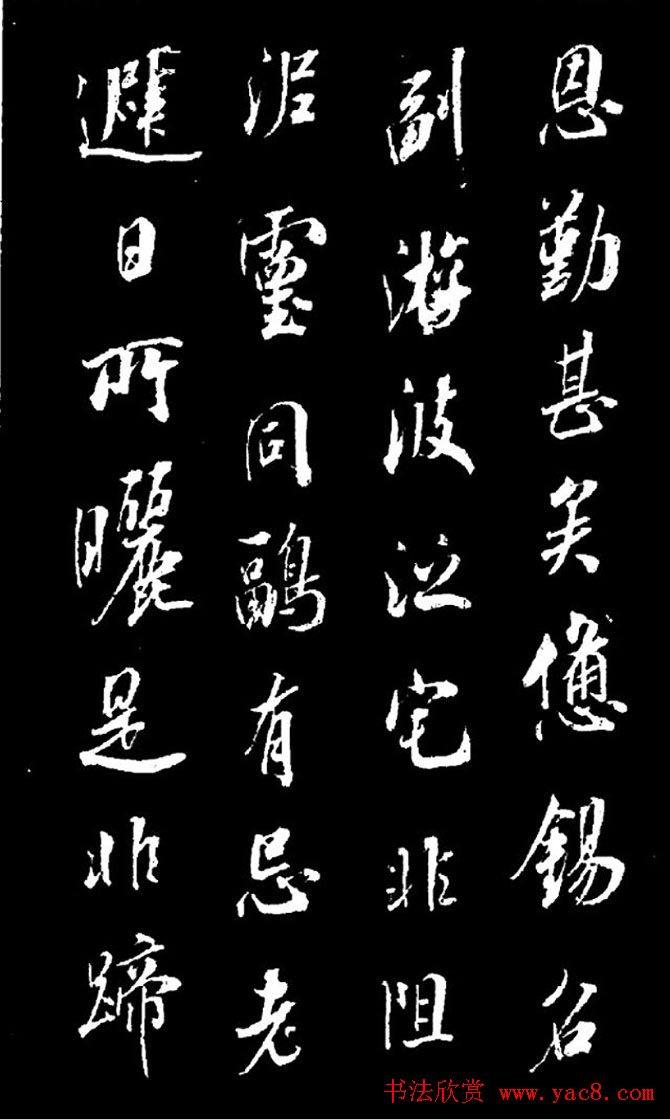 恩勤甚矣憊錫名
副游波宅非阻
靈同鷗有忌老
避日所曬是非蹄
书法欣赏 www.yac8.com